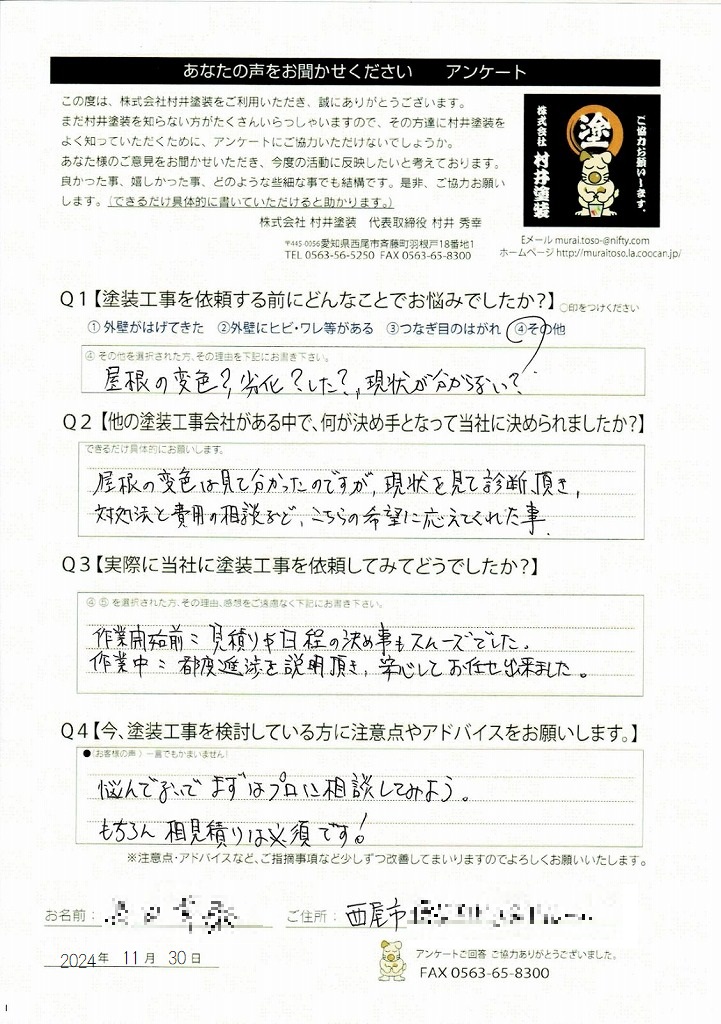 あなたの声をお聞かせください　アンケート
この度は、株式会社村井塗装をご利用いただき、誠にありがとうございます。
まだ村井塗装を知らない方がたくさんいらっしゃいますので、その方達に村井塗装を
よく知っていただくために、アンケートにご協力いただけないでしょうか。
あなた様のご意見をお聞かせいただき、今度の活動に反映したいと考えております。
良かった事、嬉しかった事、どのような些細な事でも結構です。是非、ご協力お願い
します。（できるだけ具体的に書いていただけると助かります。）
株式会社 村井塗装　代表取締役 村井 秀幸
〒445-0056愛知県西尾市斉藤町羽根戸18番地1
TEL 0563-56-5250 FAX 0563-65-8300
ご協力お願いします。
塗
株式会社 村井塗装
Eメール murai.toso@nifty.com
ホームページ http://muraitoso.la.coocan.jp/
Q1【塗装工事を依頼する前にどんなことでお悩みでしたか？】○印をつけください
①外壁がはげてきた ②外壁にヒビ・ワレ等がある ③つなぎ目のはがれ ④その他
④ その他を選択された方、その理由を下記にお書き下さい。
屋根の変色？, 劣化？した？, 現状が分からない？
Q2【他の塗装工事会社がある中で、何が決め手となって当社に決められましたか？】
できるだけ具体的にお願いします。
屋根の変色は見て分かったのですが, 現状を見て診断頂き,
対処法と費用の相談など, こちらの希望に応えてくれた事.
Q3【実際に当社に塗装工事を依頼してみてどうでしたか？】
④ ⑤ を選択された方、その理由、感想をご遠慮なく下記にお書き下さい。
作業開始前：見積りや日程の決め事もスムーズでした。
作業中：都度進渉を説明頂き, 安心してお任せ出来ました。
Q4【今、塗装工事を検討している方に注意点やアドバイスをお願いします。】
●（お客様の声）一言でもかまいません）
悩んでないでまずはプロに相談してみよう。
もちろん相見積りは必須です！
※注意点・アドバイスなど、ご指摘事項など少しずつ改善してまいりますのでよろしくお願いいたします。
お名前：
ご住所： 西尾市
2024年 11月 30日
アンケートご回答 ご協力ありがとうございました。
FAX 0563-65-8300